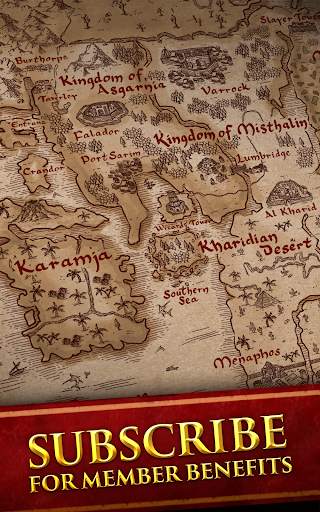 Slayer Tower
Burthorpe
Kingdom of
Asgarnia
Varrock
Taverley
Entrana
Falador
Kingdom of Misthalin
Crandor
Port Sarim
Lumbridge
Al Kharid
Wizards' Tower
Karamja
Kharidian
Desert
Southern
Sea
Menaphos
SUBSCRIBE
FOR MEMBER BENEFITS